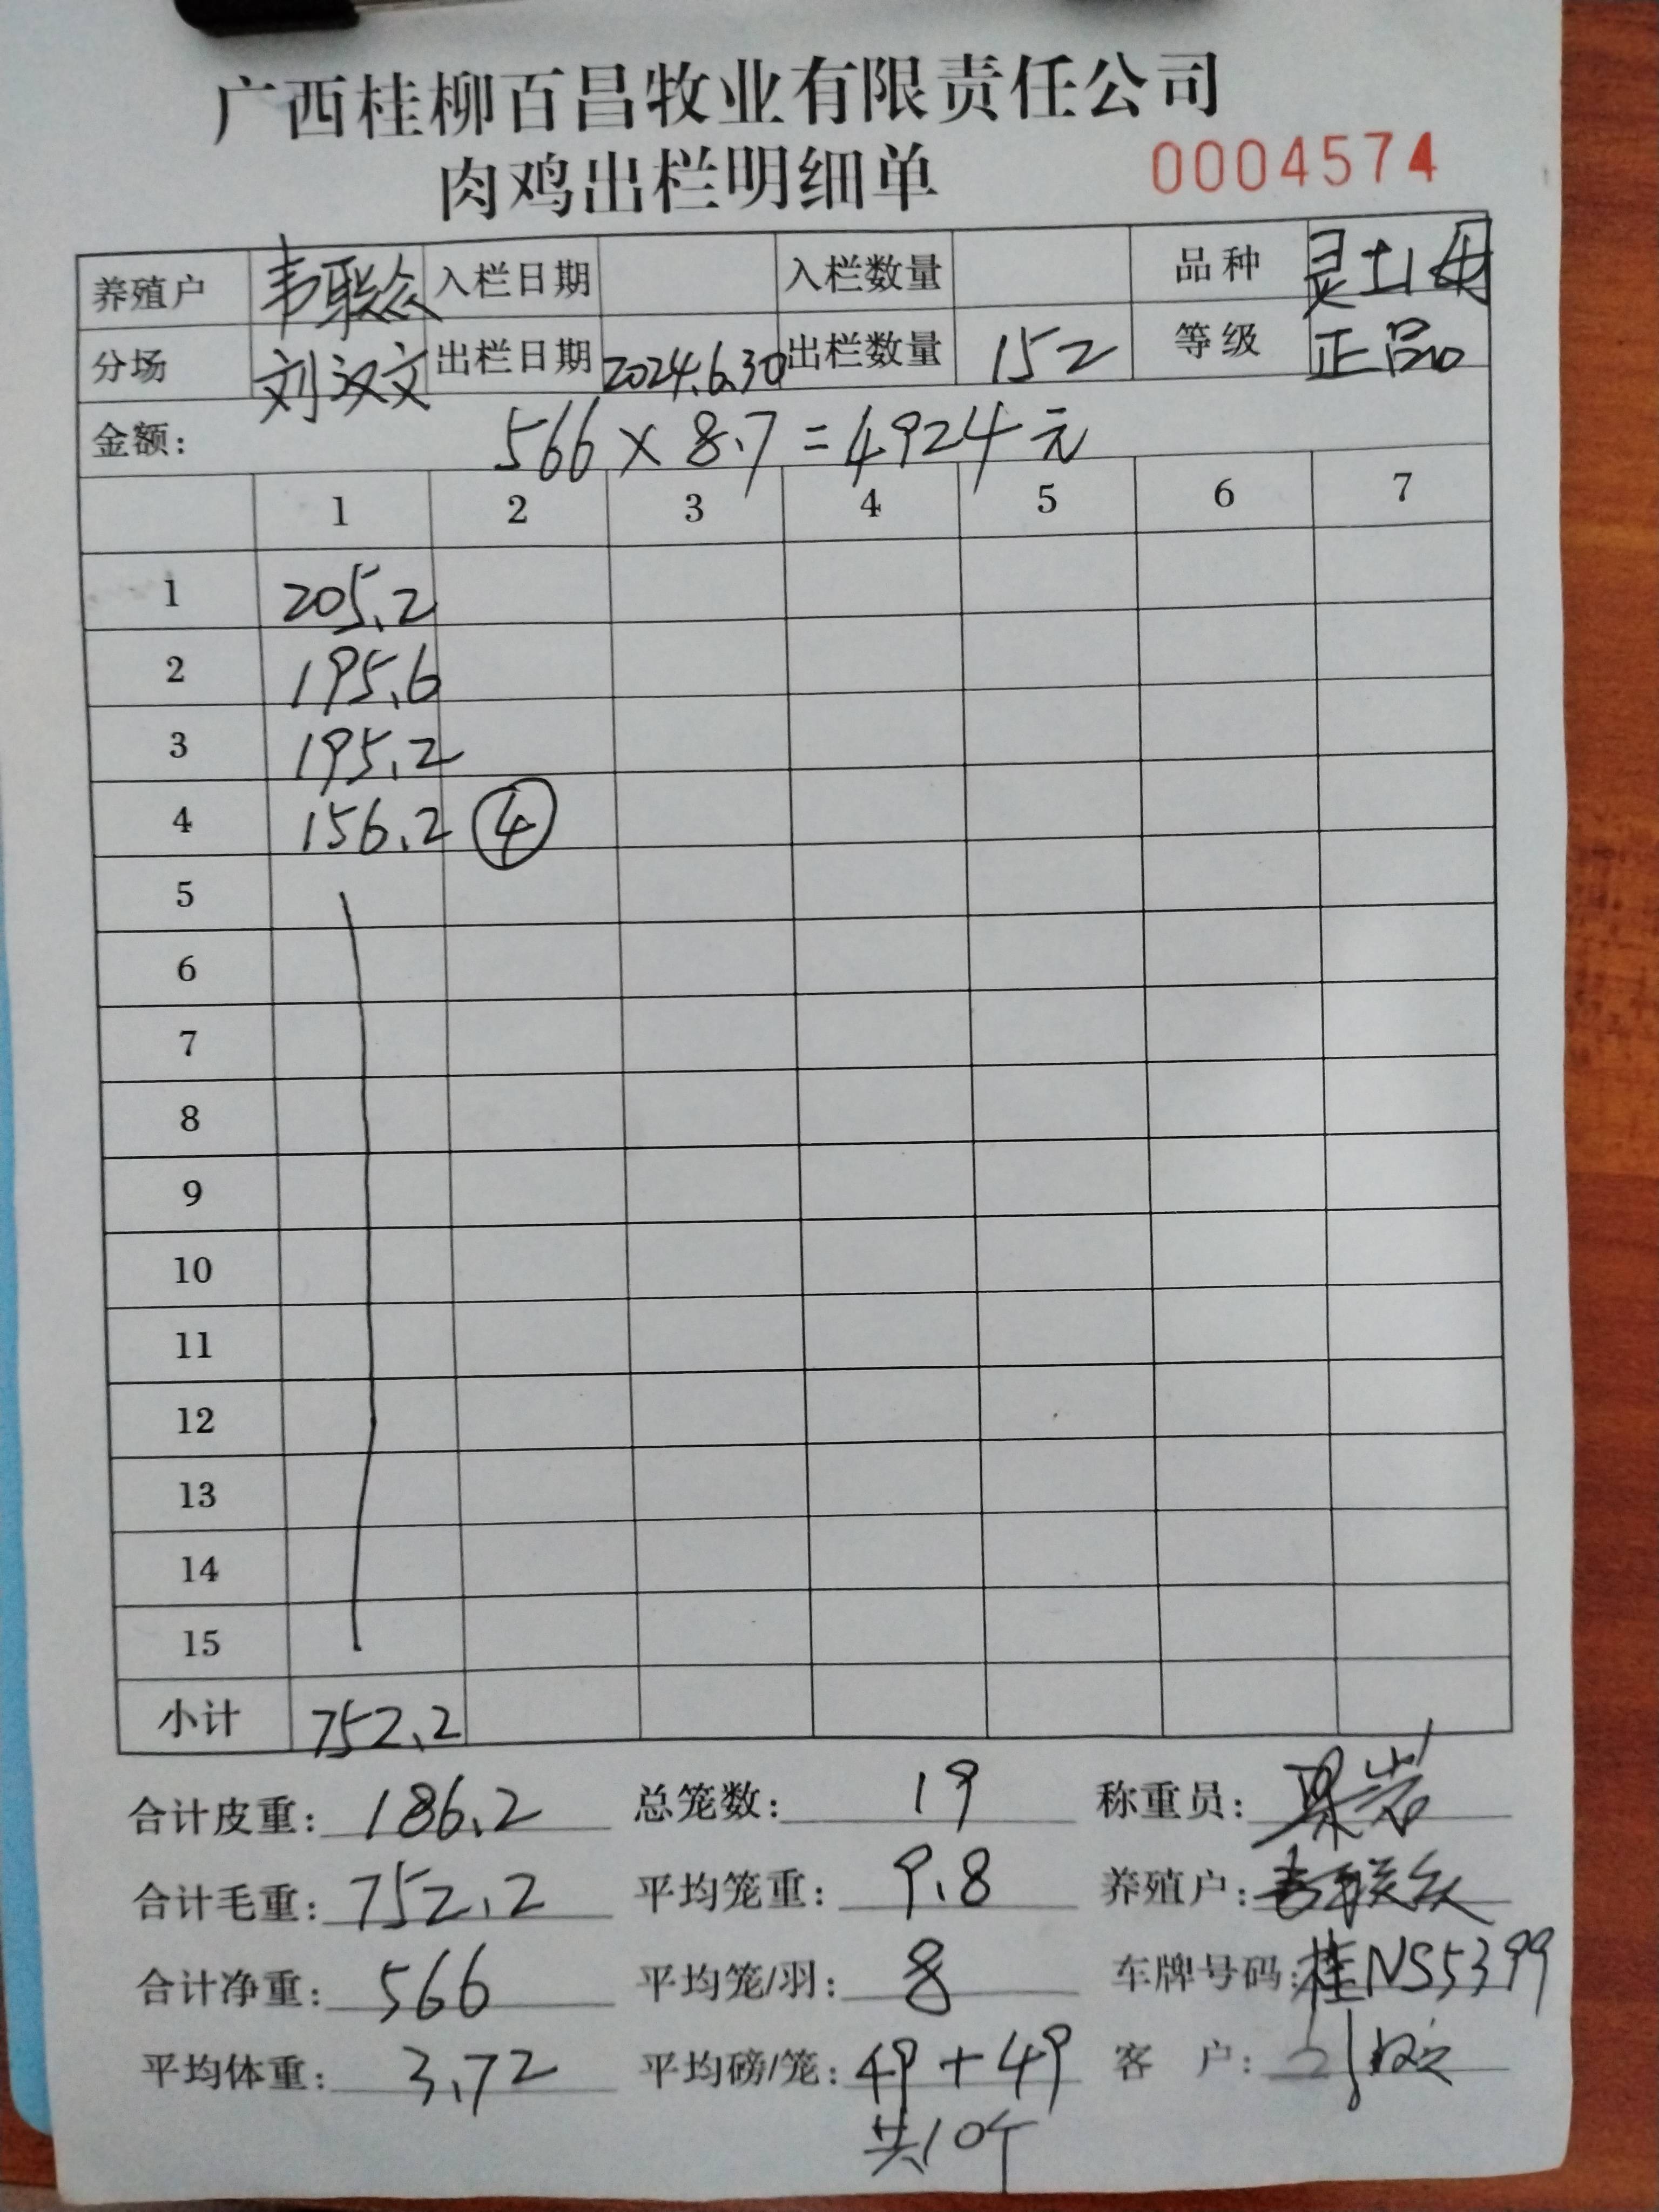 广西桂柳百昌牧业有限责任公司
肉鸡出栏明细单 0004574
养殖户 韦联众 入栏日期 入栏数量 品种 灵土1母
分场 刘汉文 出栏日期 2024.6.30 出栏数量 152 等级 正品
金额: 566×8.7=4924元
1 2 3 4 5 6 7
1 205.2
2 195.6
3 195.2
4 156.2 ④
5
6
7
8
9
10
11
12
13
14
15
小计 752.2
合计皮重: 186.2 总笼数: 19 称重员:
合计毛重: 752.2 平均笼重: 9.8 养殖户: 韦联众
合计净重: 566 平均笼/羽: 8 车牌号码: 桂NS5399
平均体重: 3.72 平均磅/笼: 49+49 客 户:
共10个